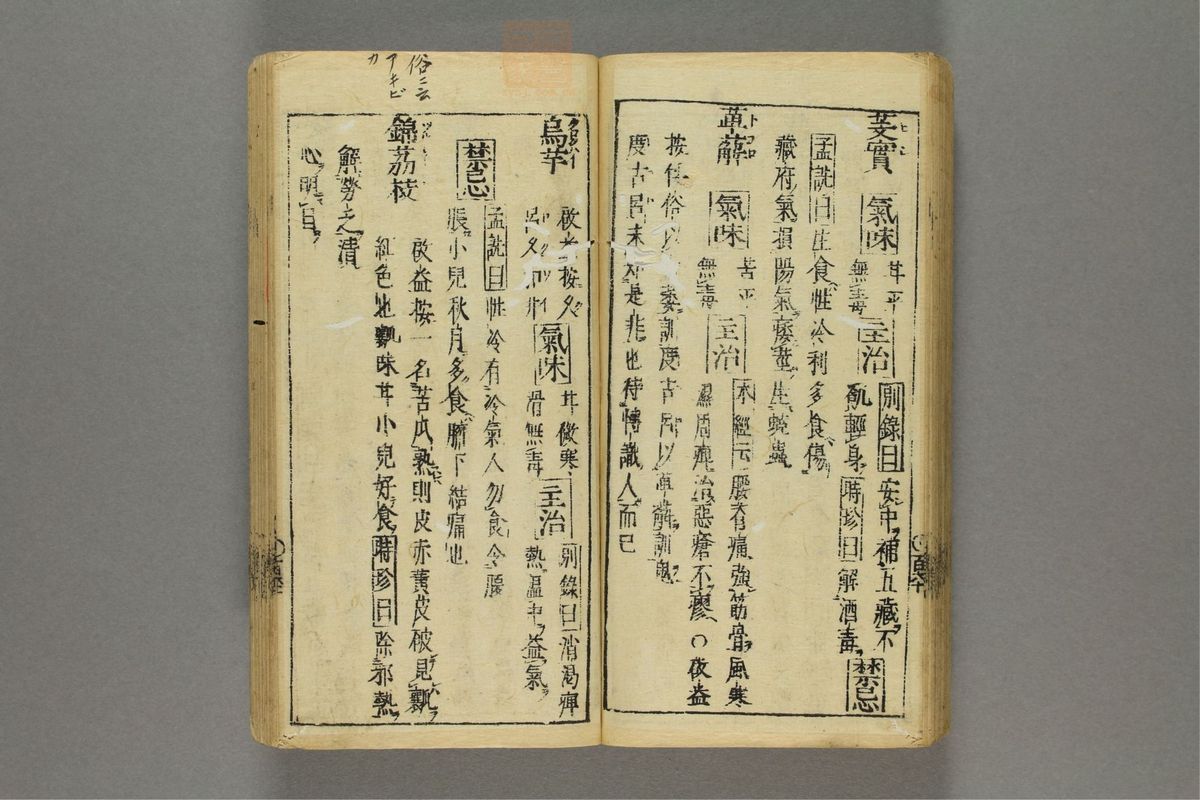 芰實 氣味 甘平 主治 別錄曰安中補五藏不
無毒 飢輕身 時珍曰解酒毒 禁忌
孟詵曰生食性冷利多食傷
藏府氣損陽氣痿莖生蟯蟲
萆薢 氣味 苦平 主治 本經云腰脊痛強筋骨風寒
無毒 濕周痺治惡瘡不瘳〇啟益
按 俗以 訓度古呂以萆薢訓
度古呂未 是非也待博識人而已
烏芋 啟益按久 氣味 甘微寒 主治 別錄曰消渴痺
滑無毒 熱溫中益氣
禁忌 孟詵曰性冷有冷氣人勿食令腹
脹小兒秋月多食臍下結痛也
錦荔枝 啟益按一名苦瓜熟則皮赤黃皮破見瓤
紅色也瓤味甘小兒好食 時珍曰 除邪熱
解勞乏清
心明目
俗ニ云
アキビ
カ